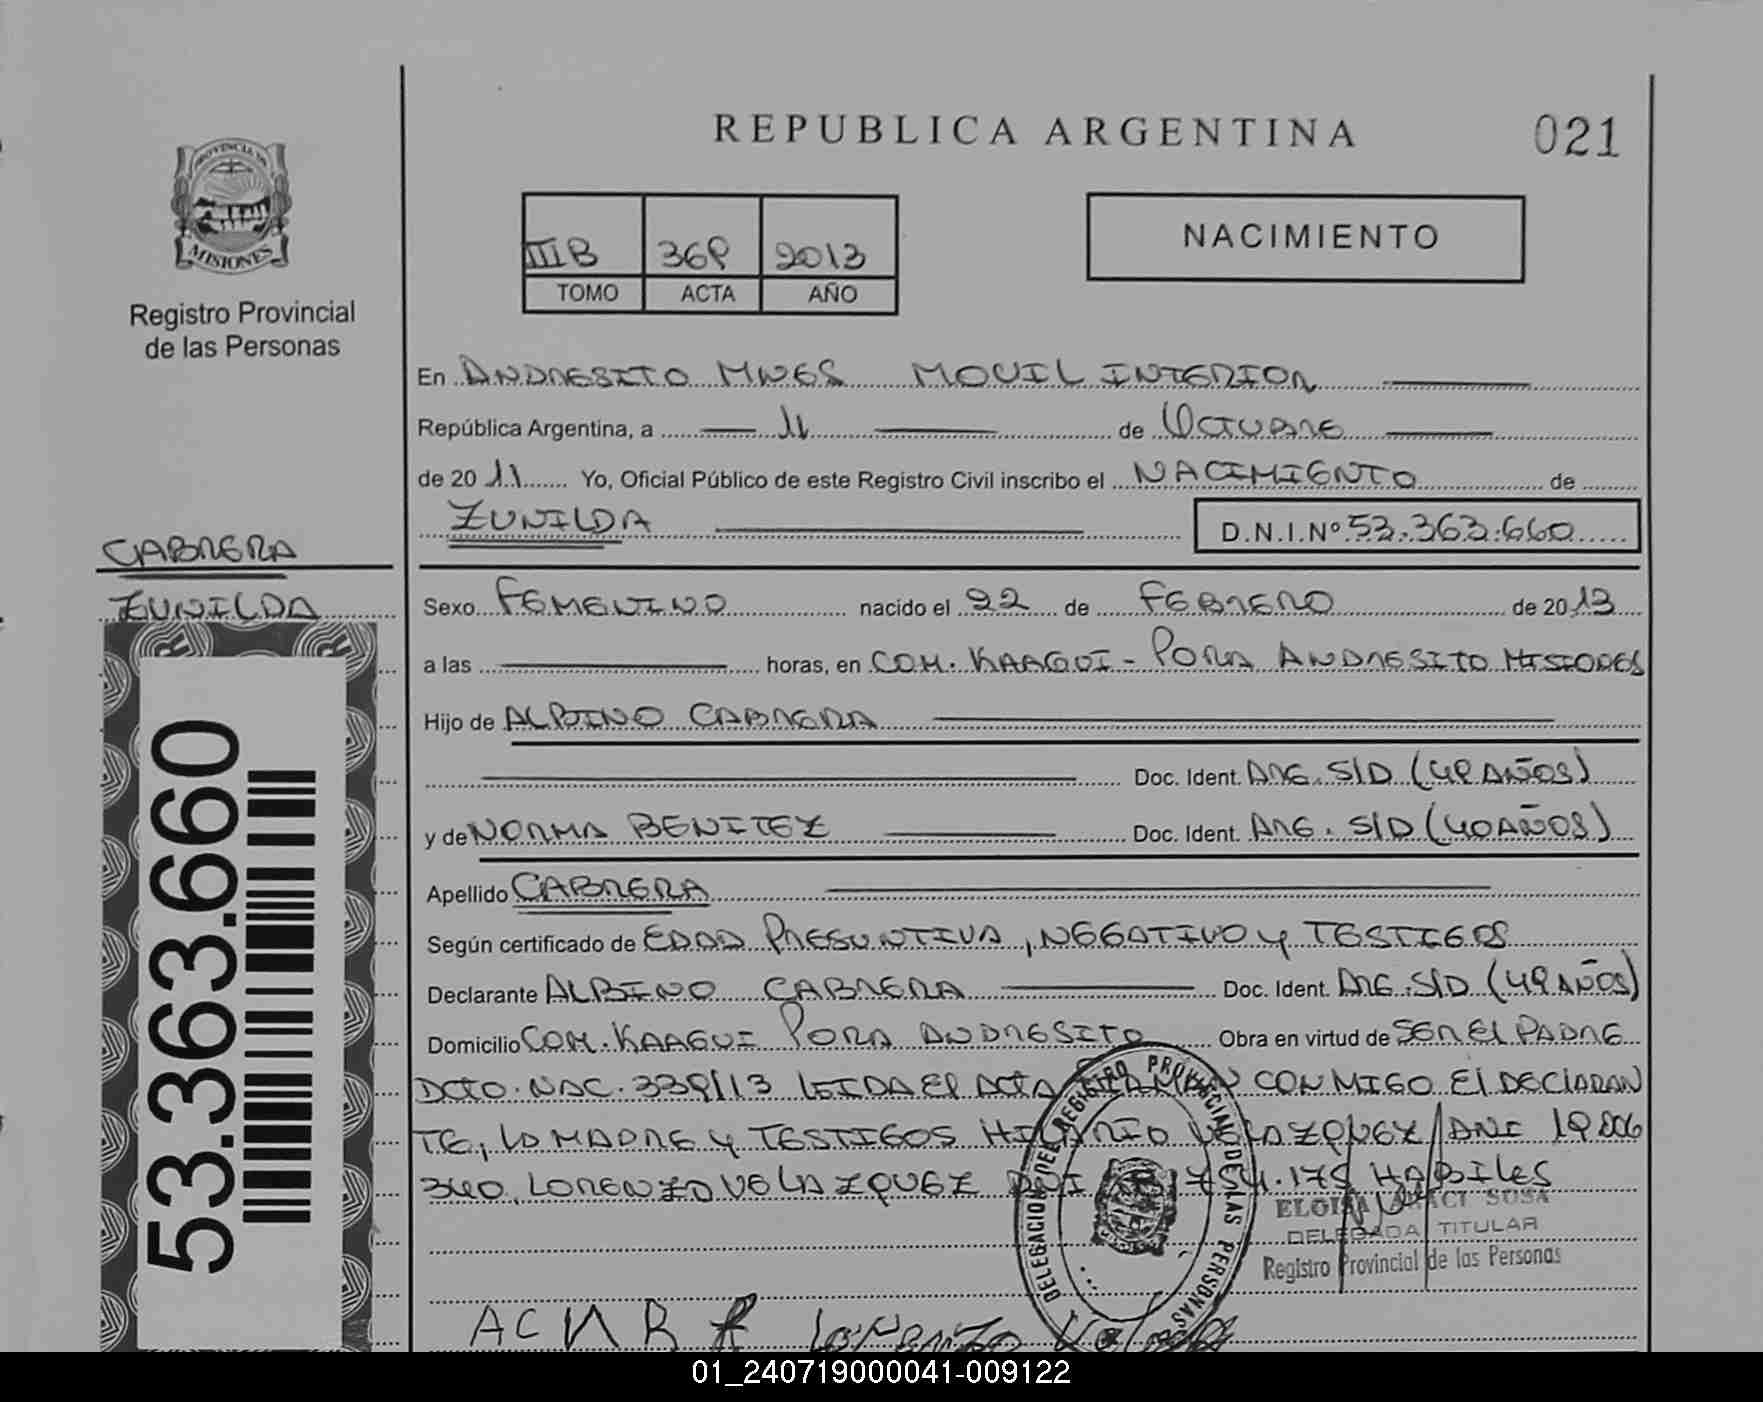 REPUBLICA ARGENTINA
021
PROVINCIA DE
MISIONES
Registro Provincial
de las Personas
IIIB 369 2013
TOMO ACTA AÑO
NACIMIENTO
En ANDRESITO MNES MOVIL INTERIOR
República Argentina, a 11 de OCTUBRE
de 2011 Yo, Oficial Público de este Registro Civil inscribo el NACIMIENTO de
ZUNILDA
D.N.I.Nº 53.363.660
CABRERA
ZUNILDA
53.363.660
Sexo FEMENINO nacido el 22 de FEBRERO de 2013
a las horas, en COM. KAAGUI - PORA ANDRESITO MISIONES
Hijo de ALBINO CABRERA
Doc. Ident. ARG. S/D (49 AÑOS)
y de NORMA BENITEZ Doc. Ident. ARG. S/D (40 AÑOS)
Apellido CABRERA
Según certificado de EDAD PRESUNTIVA, NEGATIVO y TESTIGOS
Declarante ALBINO CABRERA Doc. Ident. ARG. S/D (49 AÑOS)
Domicilio COM. KAAGUI PORA ANDRESITO Obra en virtud de SER EL PADRE
DCTO. NAC. 339/13 LEIDA EL ACTA CONMIGO El DECLARAN
TE, LA MADRE y TESTIGOS HILARIO VELAZQUEZ DNI
340, LORENZO VELAZQUEZ DNI 754.175 HABILES
DELEGACION DEL REGISTRO PROVINCIAL DE LAS PERSONAS
ELOISA SOSA
DELEGADA TITULAR
Registro Provincial de las Personas
Lorenzo
01_240719000041-009122